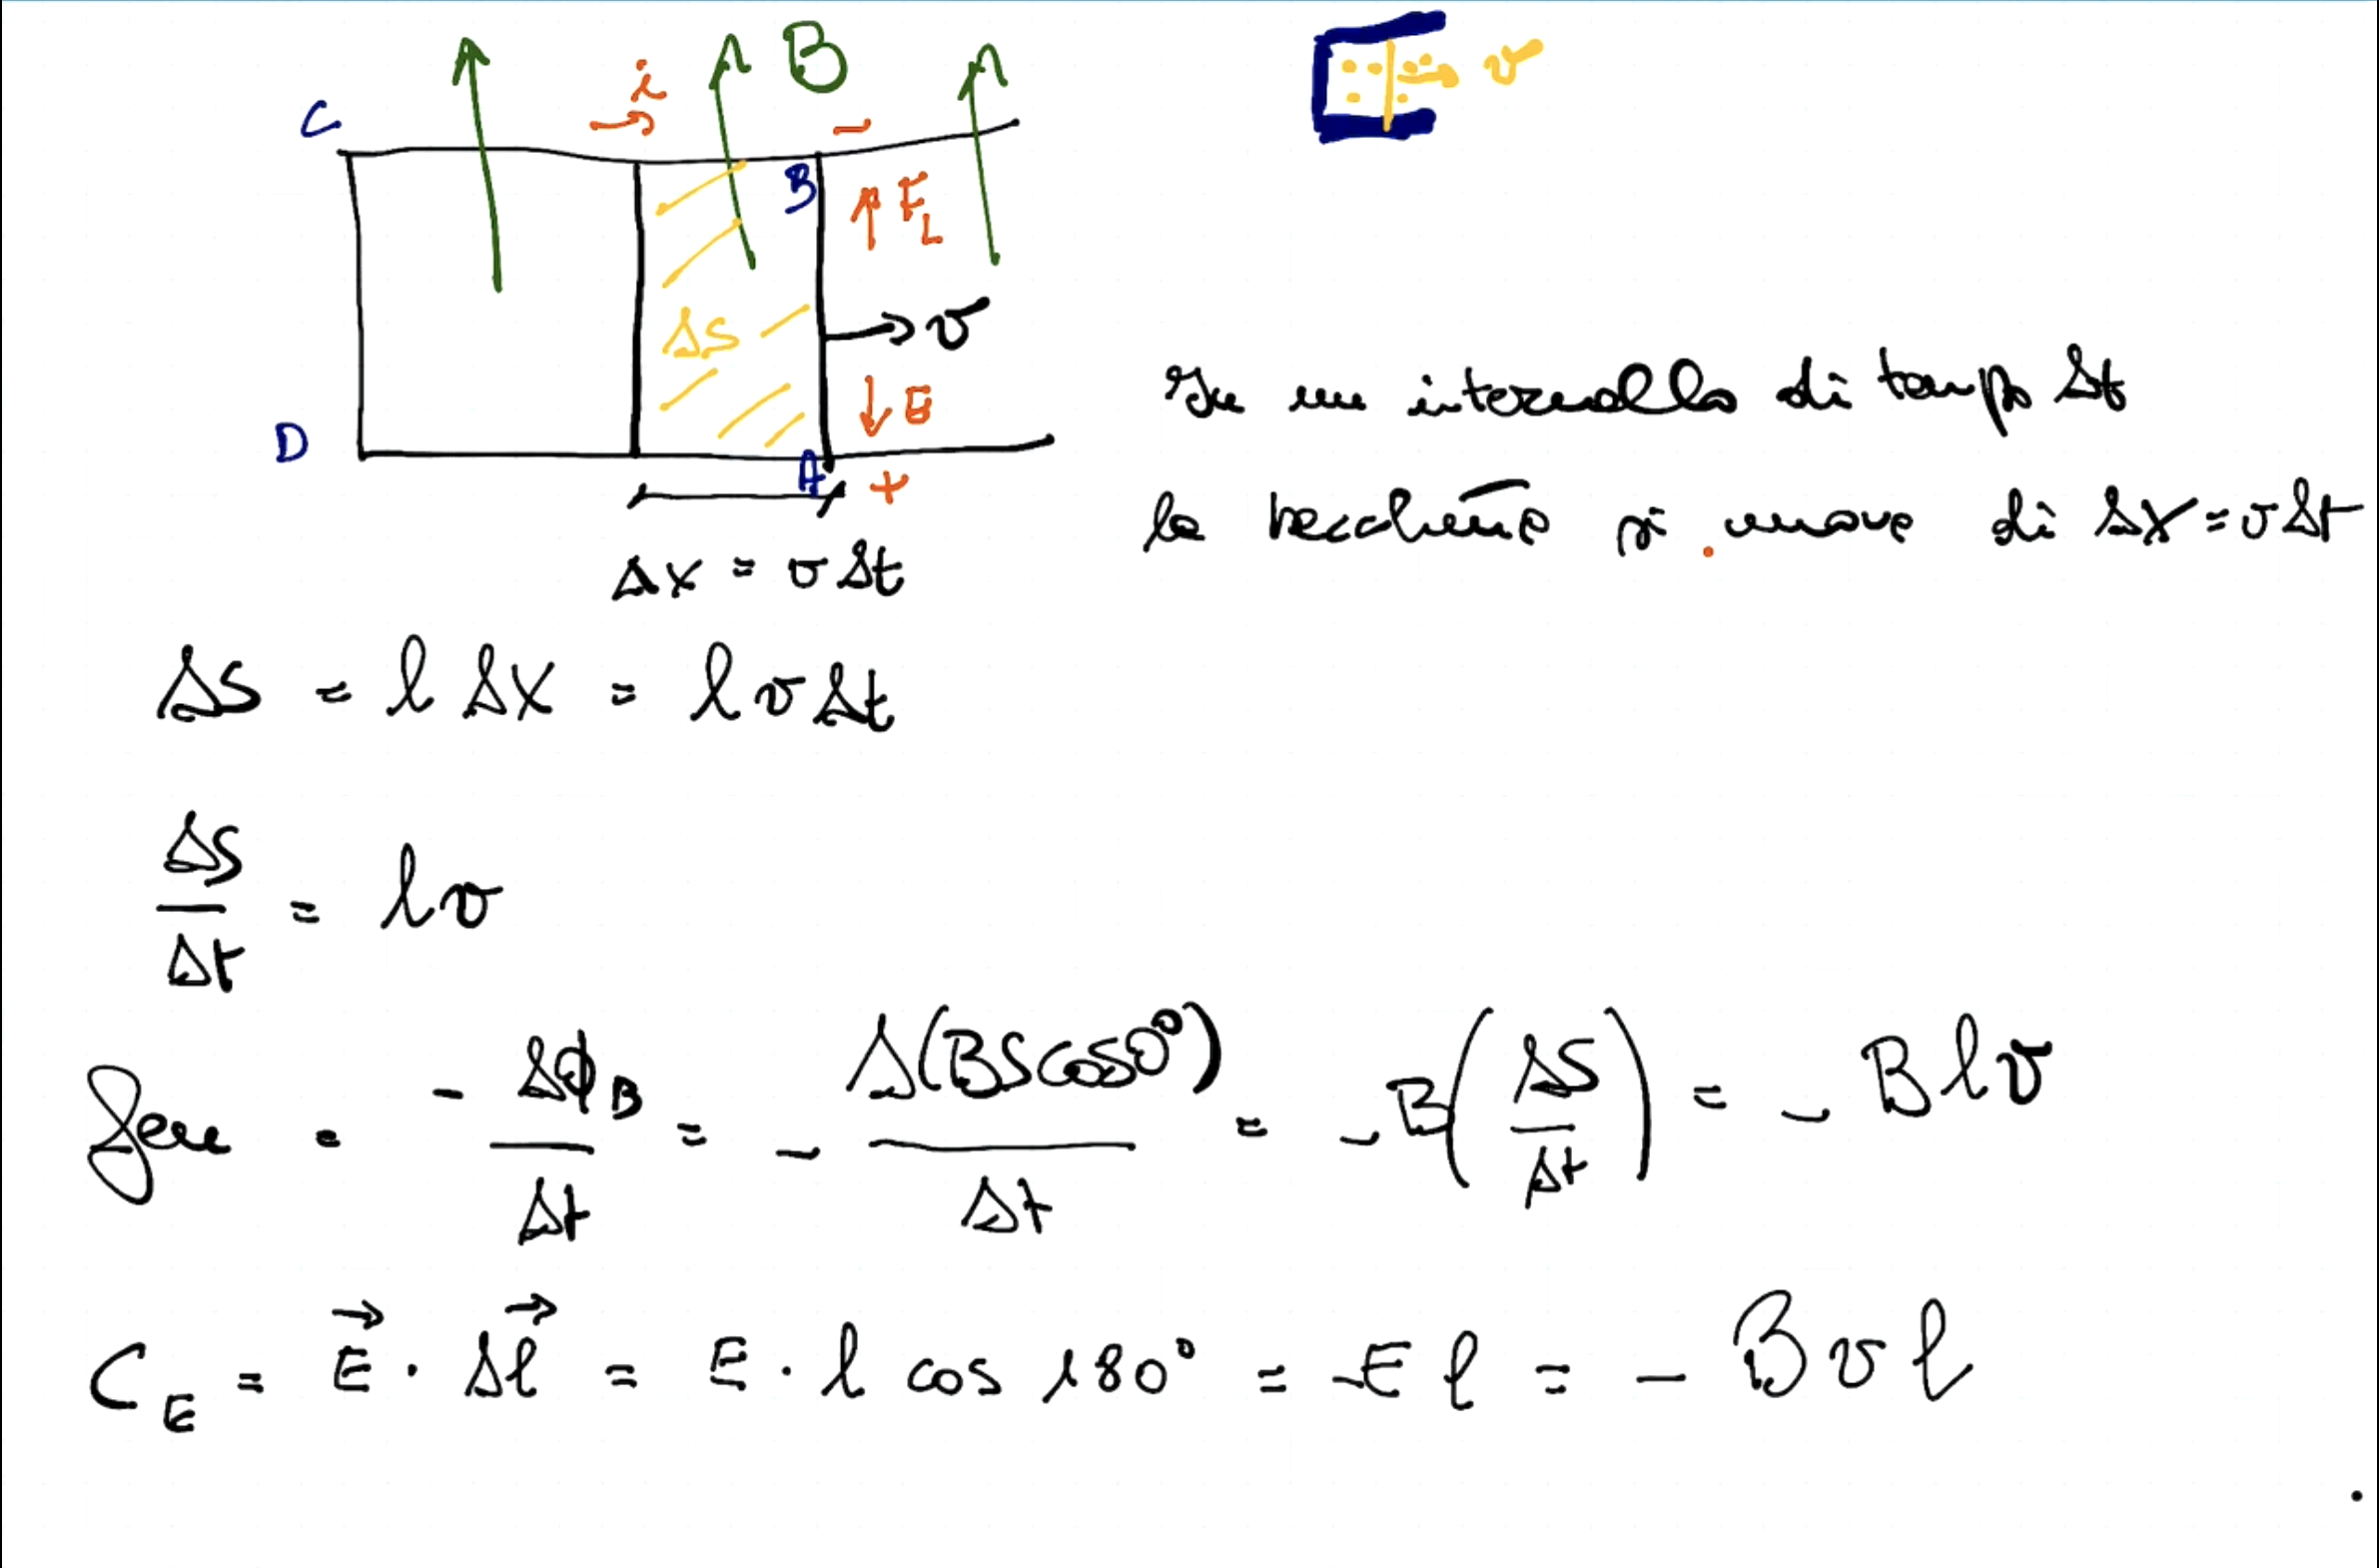 B
i
v
C
-
B
F_L
ΔS
→ v
In un intervallo di tempo Δt
E
D
A
+
la bacchetta si muove di Δx = v Δt
Δx = v Δt
ΔS = l Δx = l v Δt
ΔS/Δt = l v
fem = - ΔΦ_B/Δt = - Δ(BS cos 0°)/Δt = - B(ΔS/Δt) = - B l v
C_E = E⃗ · Δl⃗ = E · l cos 180° = -E l = - B v l